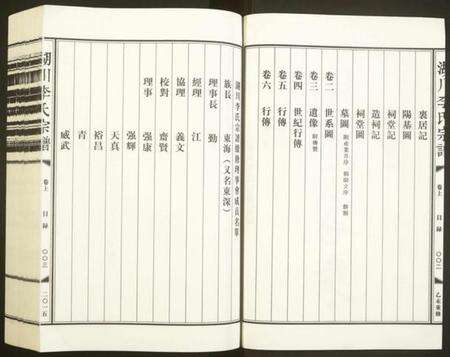 湖川李氏宗譜
卷上
目錄
〇〇二
乙未重修
裏居記
陽基圖
造祠記
祠堂記
祠堂圖
墓圖
卷二 世系圖
卷三 遺像 附傳贊
卷四 世紀行傳
卷五 行傳
卷六 行傳
湖川李氏宗譜續修理事會成員名單
族長 東海（又名東深）
理事長 勤
經理 江
協理 義文
校對 齋賢
理事 强康
强輝
天真
裕昌
青
威武
湖川李氏宗譜
卷上
目錄
〇〇三
二〇一五